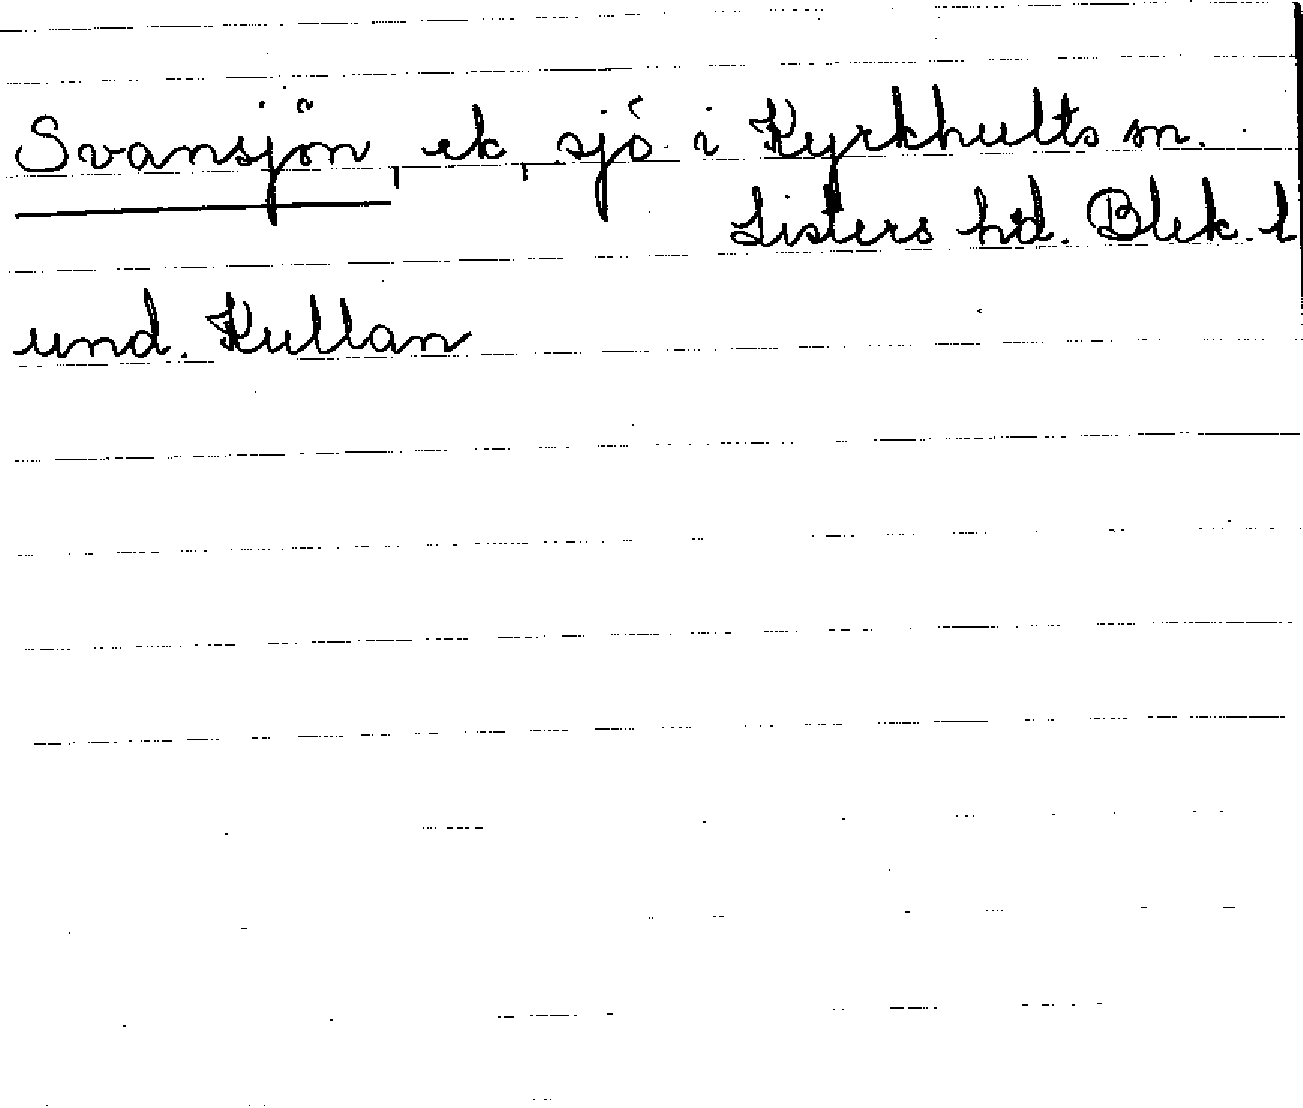 Svansjön, ek, sjö i Kyrkhults sn.
Listers hd. Blek. l
und. Kullan